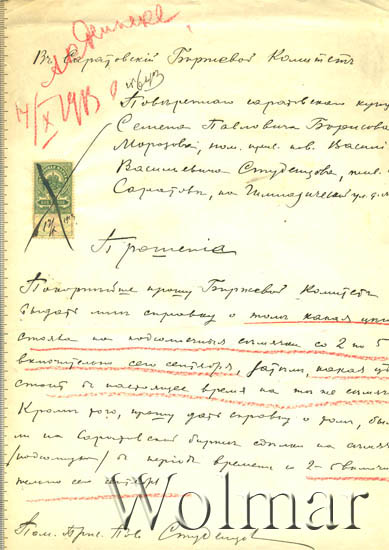 14/X 1913
Въ Саратовскій Биржевой Комитетъ
Повѣреннаго саратовскаго
Семена Павловича Борисова-
Морозова, пом. прис. пов. Васил
Васильевича Студенцова,
Саратовѣ, на Гимназической ул. д.
Прошеніе
Покорнѣйше прошу Биржевой Комитетъ
выдать мнѣ справку о томъ какая цѣна
стояла на подсолнечныя сѣмячки со 2 по 5
включительно сего сентября, затѣмъ, какая цѣ
стоитъ въ настоящее время на те же сѣмячки
Кромѣ того, прошу дать справку о томъ, бы
ли на Саратовской биржѣ сдѣлки на сѣмячки
/подсолнухъ/ въ періодъ времени со 2-5 включи
тельно сего сентября
Пом. Прис. Пов. Студенцов
Wolmar